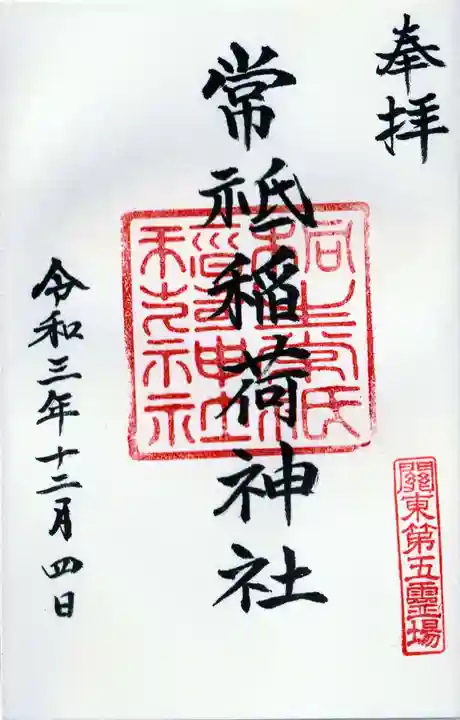 奉拝
關東第五靈場
常祗稲荷神社
令和三年十二月四日